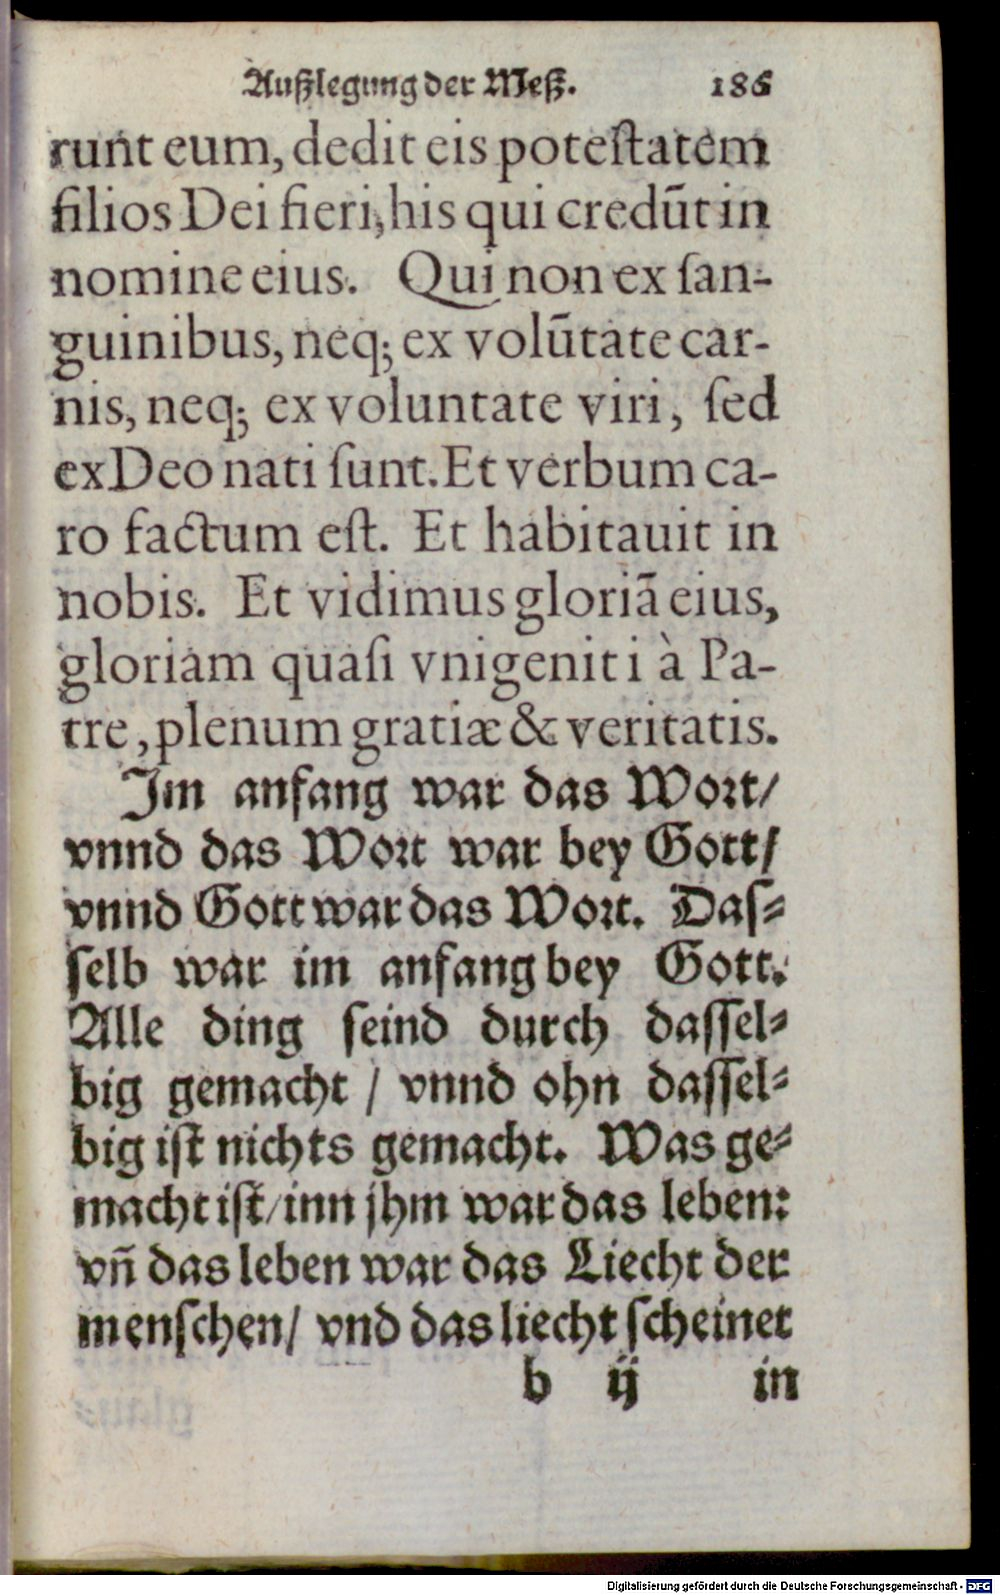 Außlegung der Meß. 186
runt eum, dedit eis potestatem
filios Dei fieri, his qui credūt in
nomine eius. Qui non ex ſan-
guinibus, neq; ex volūtate car-
nis, neq; ex voluntate viri, ſed
ex Deo nati ſunt. Et verbum ca-
ro factum eſt. Et habitauit in
nobis. Et vidimus gloriā eius,
gloriam quaſi vnigeniti à Pa-
tre, plenum gratiæ & veritatis.
Im anfang war das Wort/
vnnd das Wort war bey Gott/
vnnd Gott war das Wort. Daſ⸗
ſelb war im anfang bey Gott.
Alle ding ſeind durch daſſel⸗
big gemacht / vnnd ohn daſſel⸗
big iſt nichts gemacht. Was ge⸗
macht iſt/ inn jhm war das leben:
vñ das leben war das Liecht der
menſchen/ vnd das liecht ſcheinet
b ij in
Digitalisierung gefördert durch die Deutsche Forschungsgemeinschaft - DFG